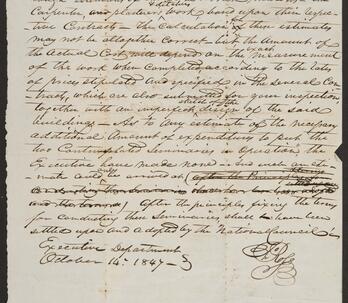 Carpenter and plastering work based upon their respec-
tive Contracts — the Calculations of their estimates
may not be altogether Correct — but the Amount of
the Actual Cost will depend on the exact measurement
of the work when Completed according to the rates
of prices stipulated and specified in the several Con-
tracts, which are also submitted for your inspection,
together with an imperfect sketch of the said
buildings — As to any estimate of the necessary
additional Amount of expenditures to put the
two Contemplated Seminaries in Operation, the
Executive have made none — nor can an esti-
mate well be arrived at
and the
After the principles fixing the terms
for conducting these Seminaries shall have been
settled upon and adopted by the National Council
Executive Department
October 14th 1847 —
Jno Ross